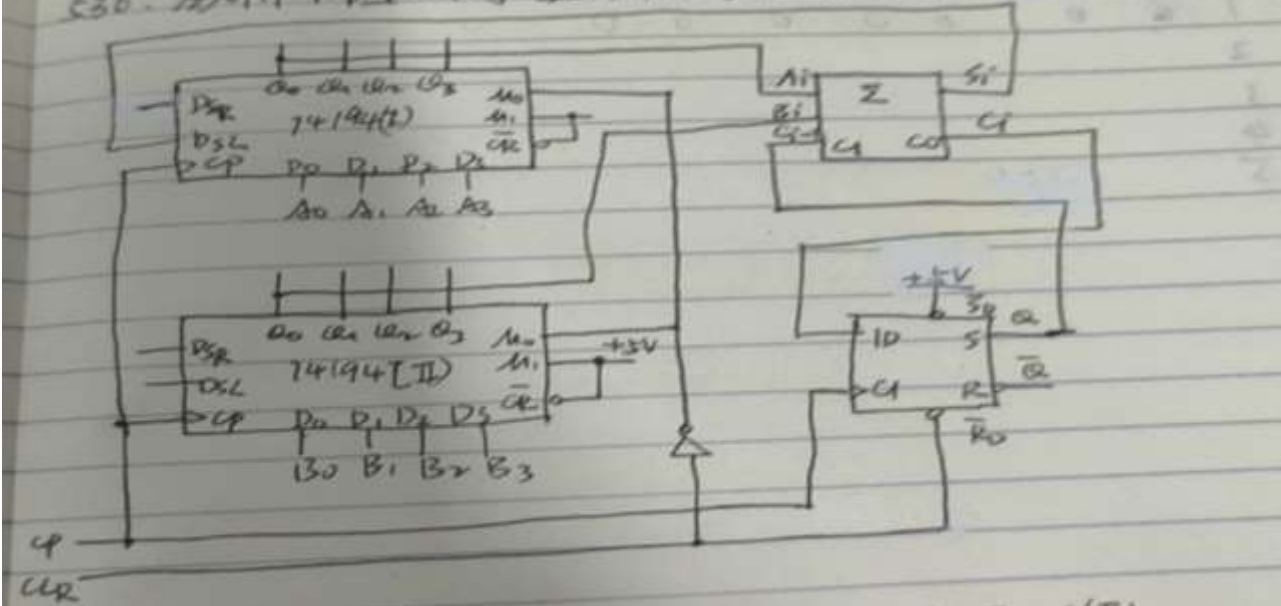 Q0 Q1 Q2 Q3
DSR
74194(I)
DSL
CP
M0
M1
CR
D0 D1 D2 D3
A0 A1 A2 A3
Ai
Bi
Ci-1
Σ
CI
CO
Si
Ci
Q0 Q1 Q2 Q3
DSR
74194(II)
DSL
CP
M0
M1
CR
+5V
D0 D1 D2 D3
B0 B1 B2 B3
+5V
SD
1D
S
Q
C1
R
Q
RD
CP
CLR